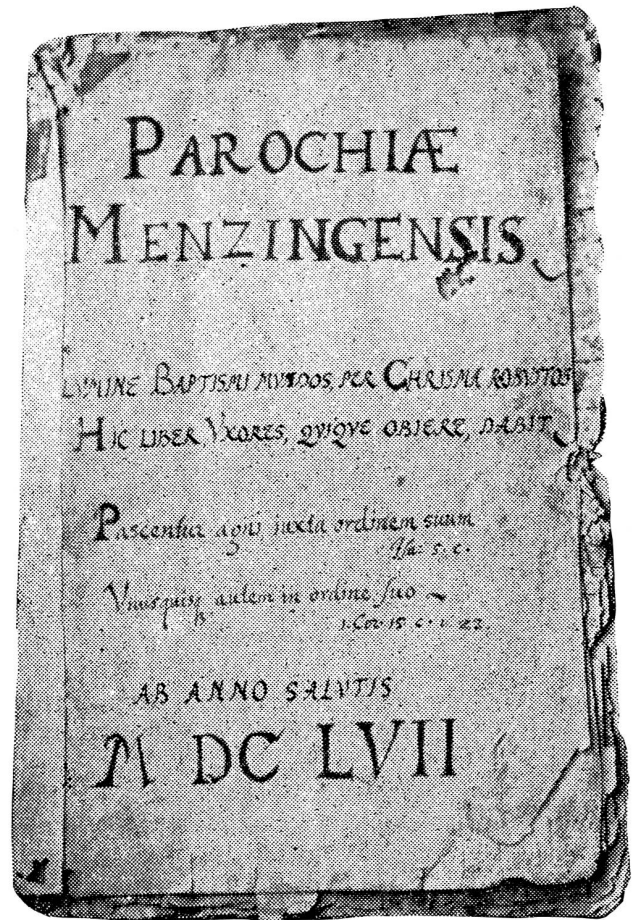 PAROCHIÆ
MENZINGENSIS
LVMINE BAPTISMI MVNDOS, PER CHRISMA ROBVSTOS
HIC LIBER VXORES, QVIQVE OBIERE, DABIT
Pascentur agni juxta ordinem suum
Isa: 5. c.
Vnusquisq autem in ordine suo
1. Cor. 15 c. v. 23.
AB ANNO SALVTIS
M DC LVII